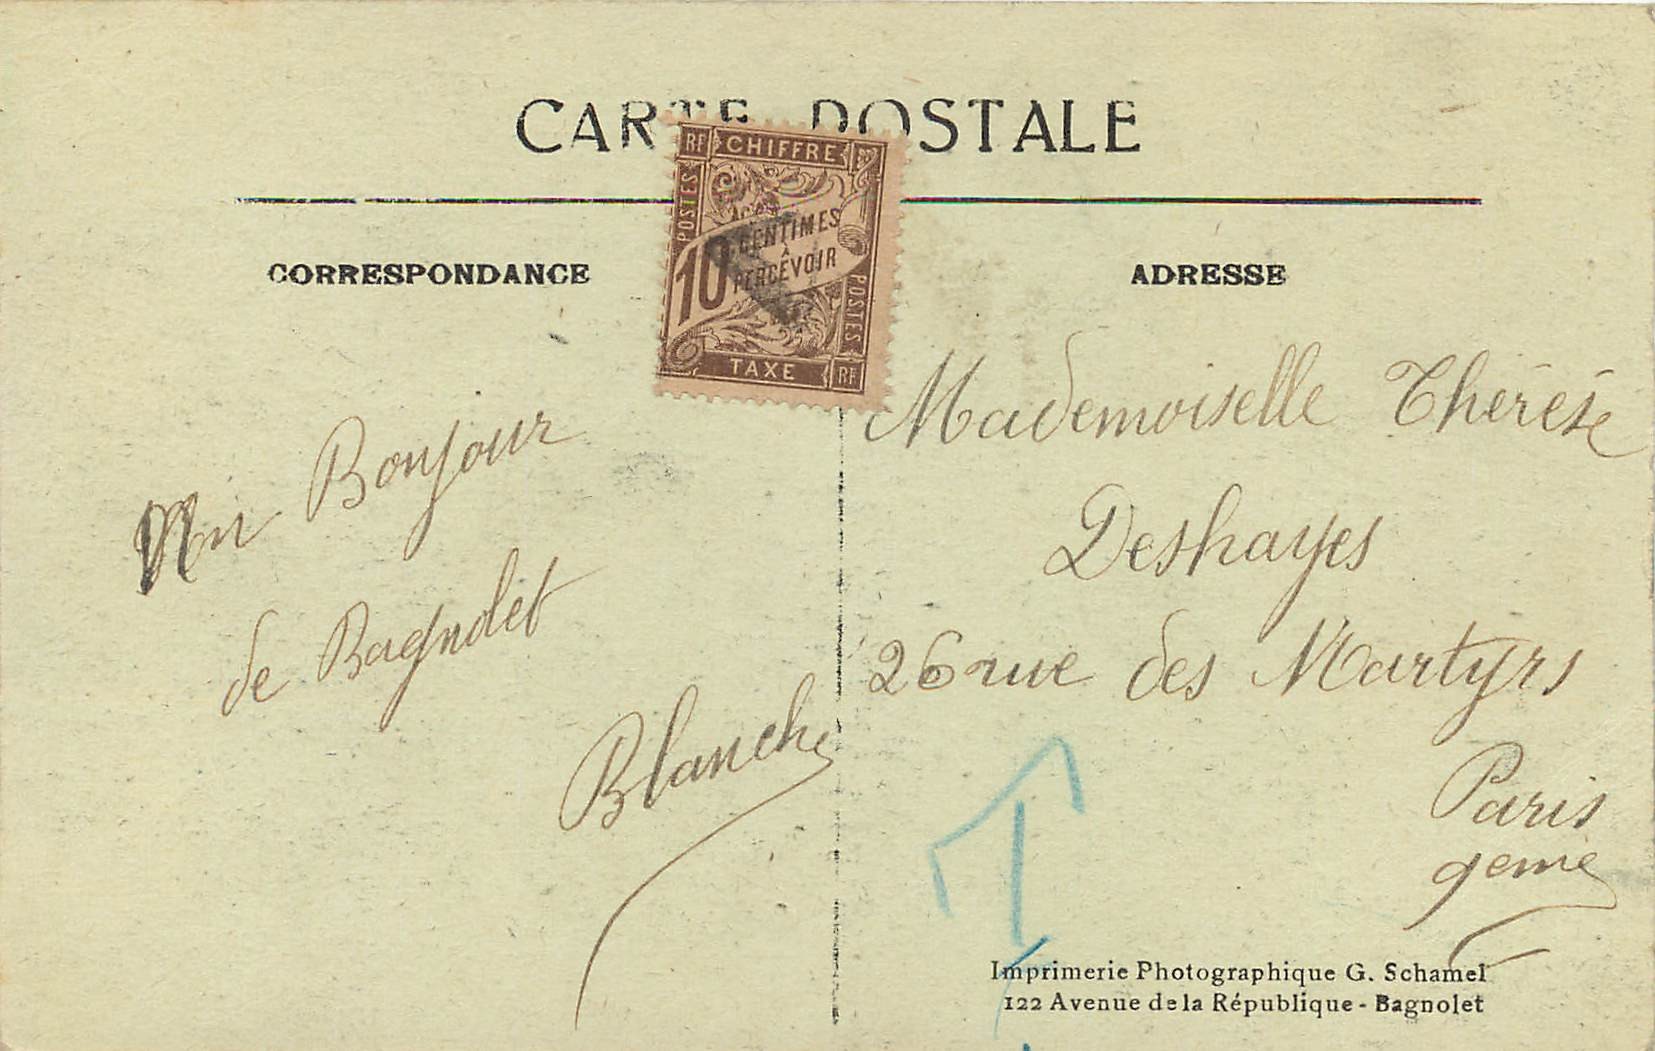 CARTE POSTALE
RF CHIFFRE
POSTES
10 CENTIMES
À
PERCEVOIR
POSTES
TAXE RF
CORRESPONDANCE
Un Bonjour
de Bagnolet
Blanche
ADRESSE
Mademoiselle Thérèse
Deshayes
26 rue des Martyrs
Paris
9eme
T
Imprimerie Photographique G. Schamel
122 Avenue de la République - Bagnolet